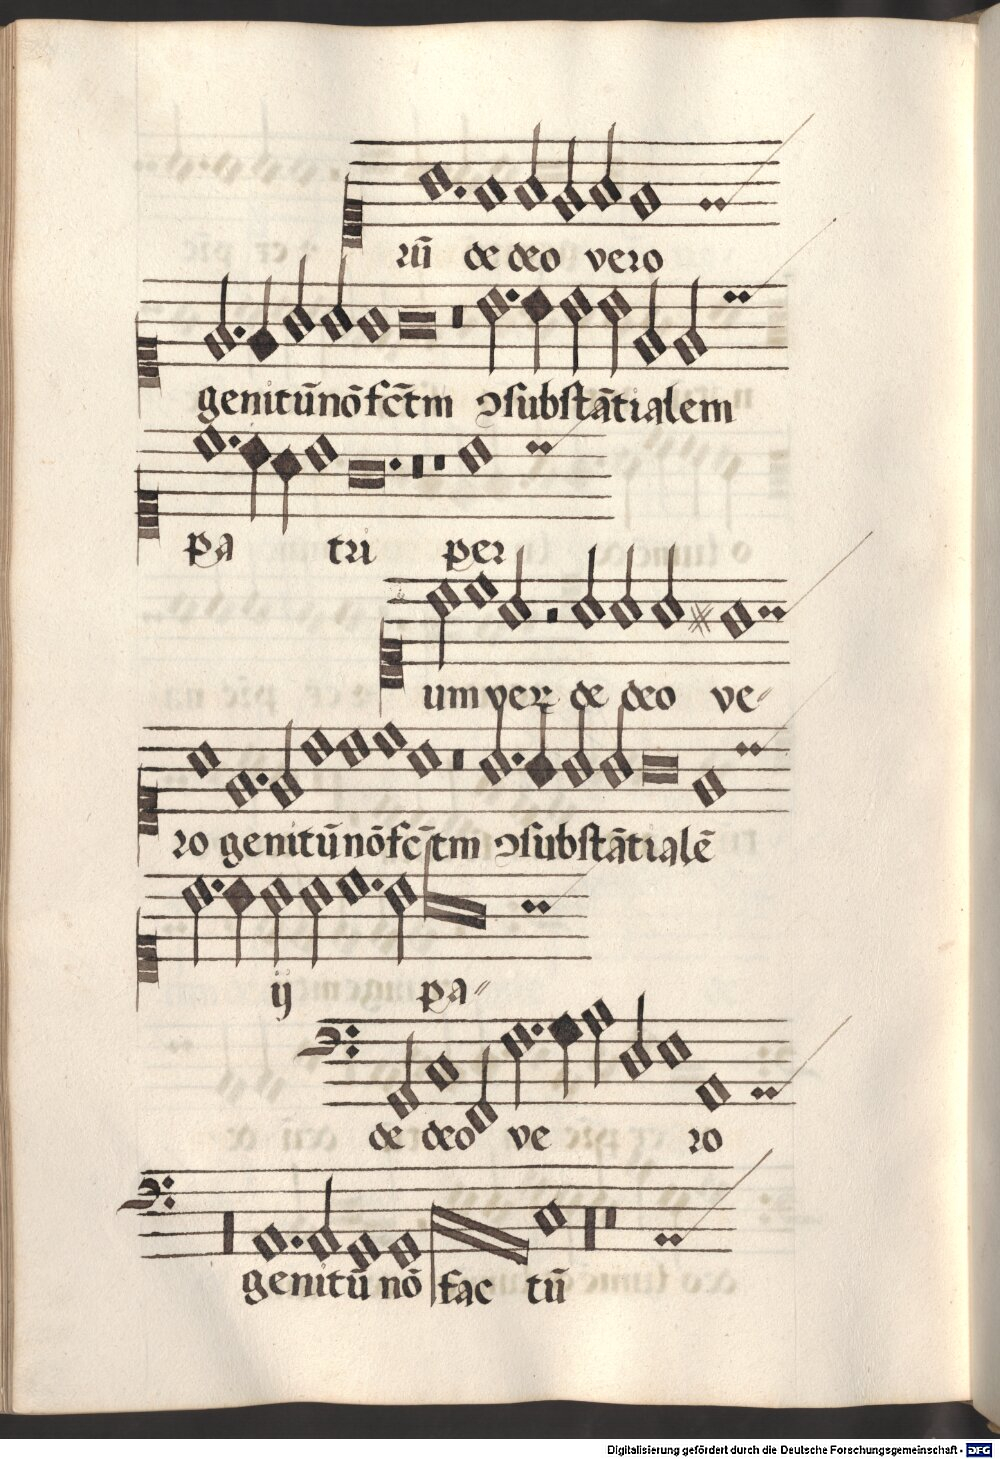 rū de deo vero
genitū nō fc̄tm ꝯsubstātialem
pa tri per
um verꝝ de deo ve⸗
ro genitū nō fc̄tm ꝯsubstātialē
ij pa⸗
de deo ve ro
genitū nō fac tū
Digitalisierung gefördert durch die Deutsche Forschungsgemeinschaft - DFG